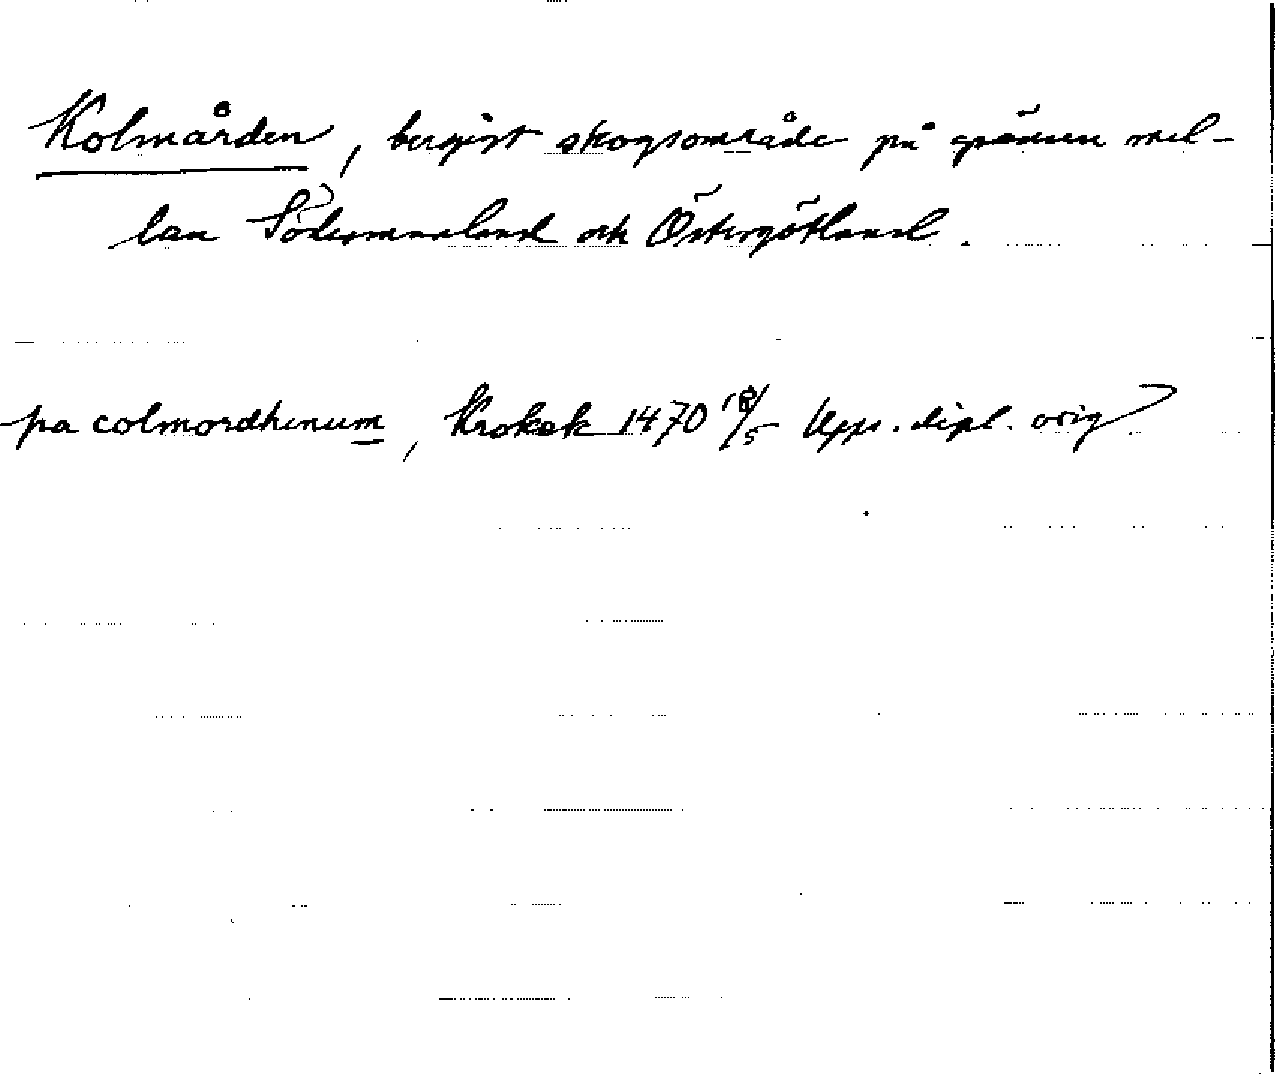 Kolmården, bergigt skogsområde på gränsen mel-
lan Södermanland och Östergötland.
pa colmordhenum, Krokek 1470 18/5 Upps. dipl. orig